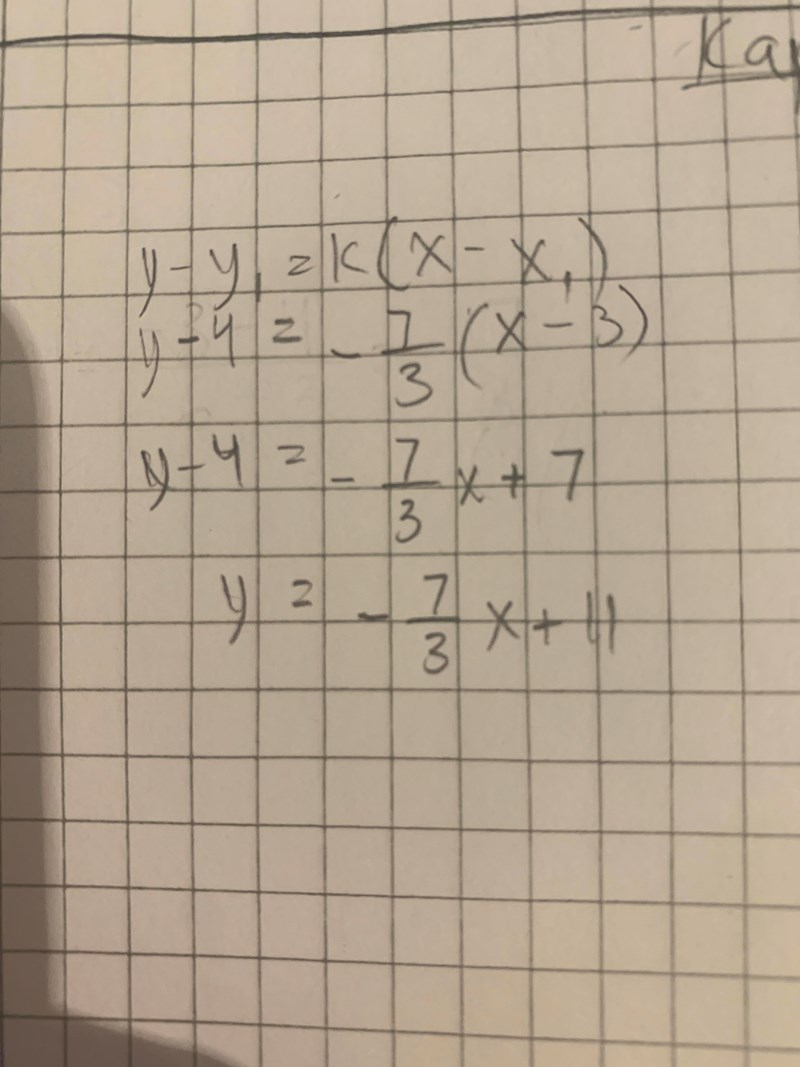 Ka
y - y₁ = k(x - x₁)
y - 4 = - 7/3 (x - 3)
y - 4 = - 7/3 x + 7
y = - 7/3 x + 11